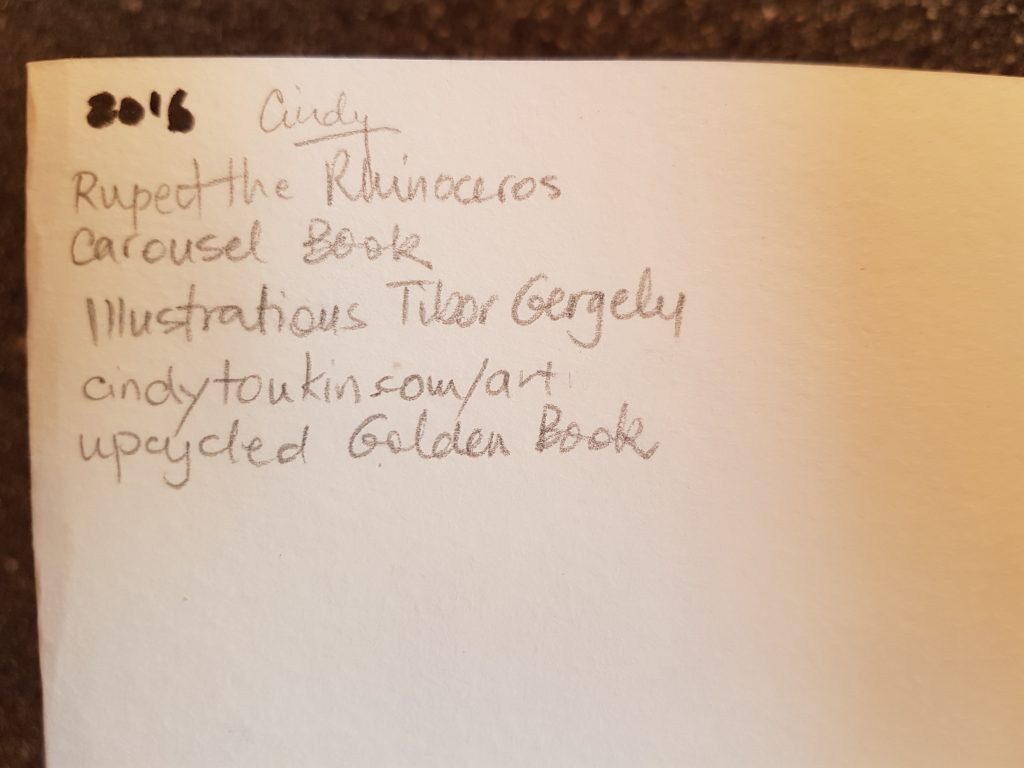 2016 Cindy
Rupert the Rhinoceros
Carousel Book
Illustrations Tibor Gergely
cindytonkin.com/art
upcycled Golden Book